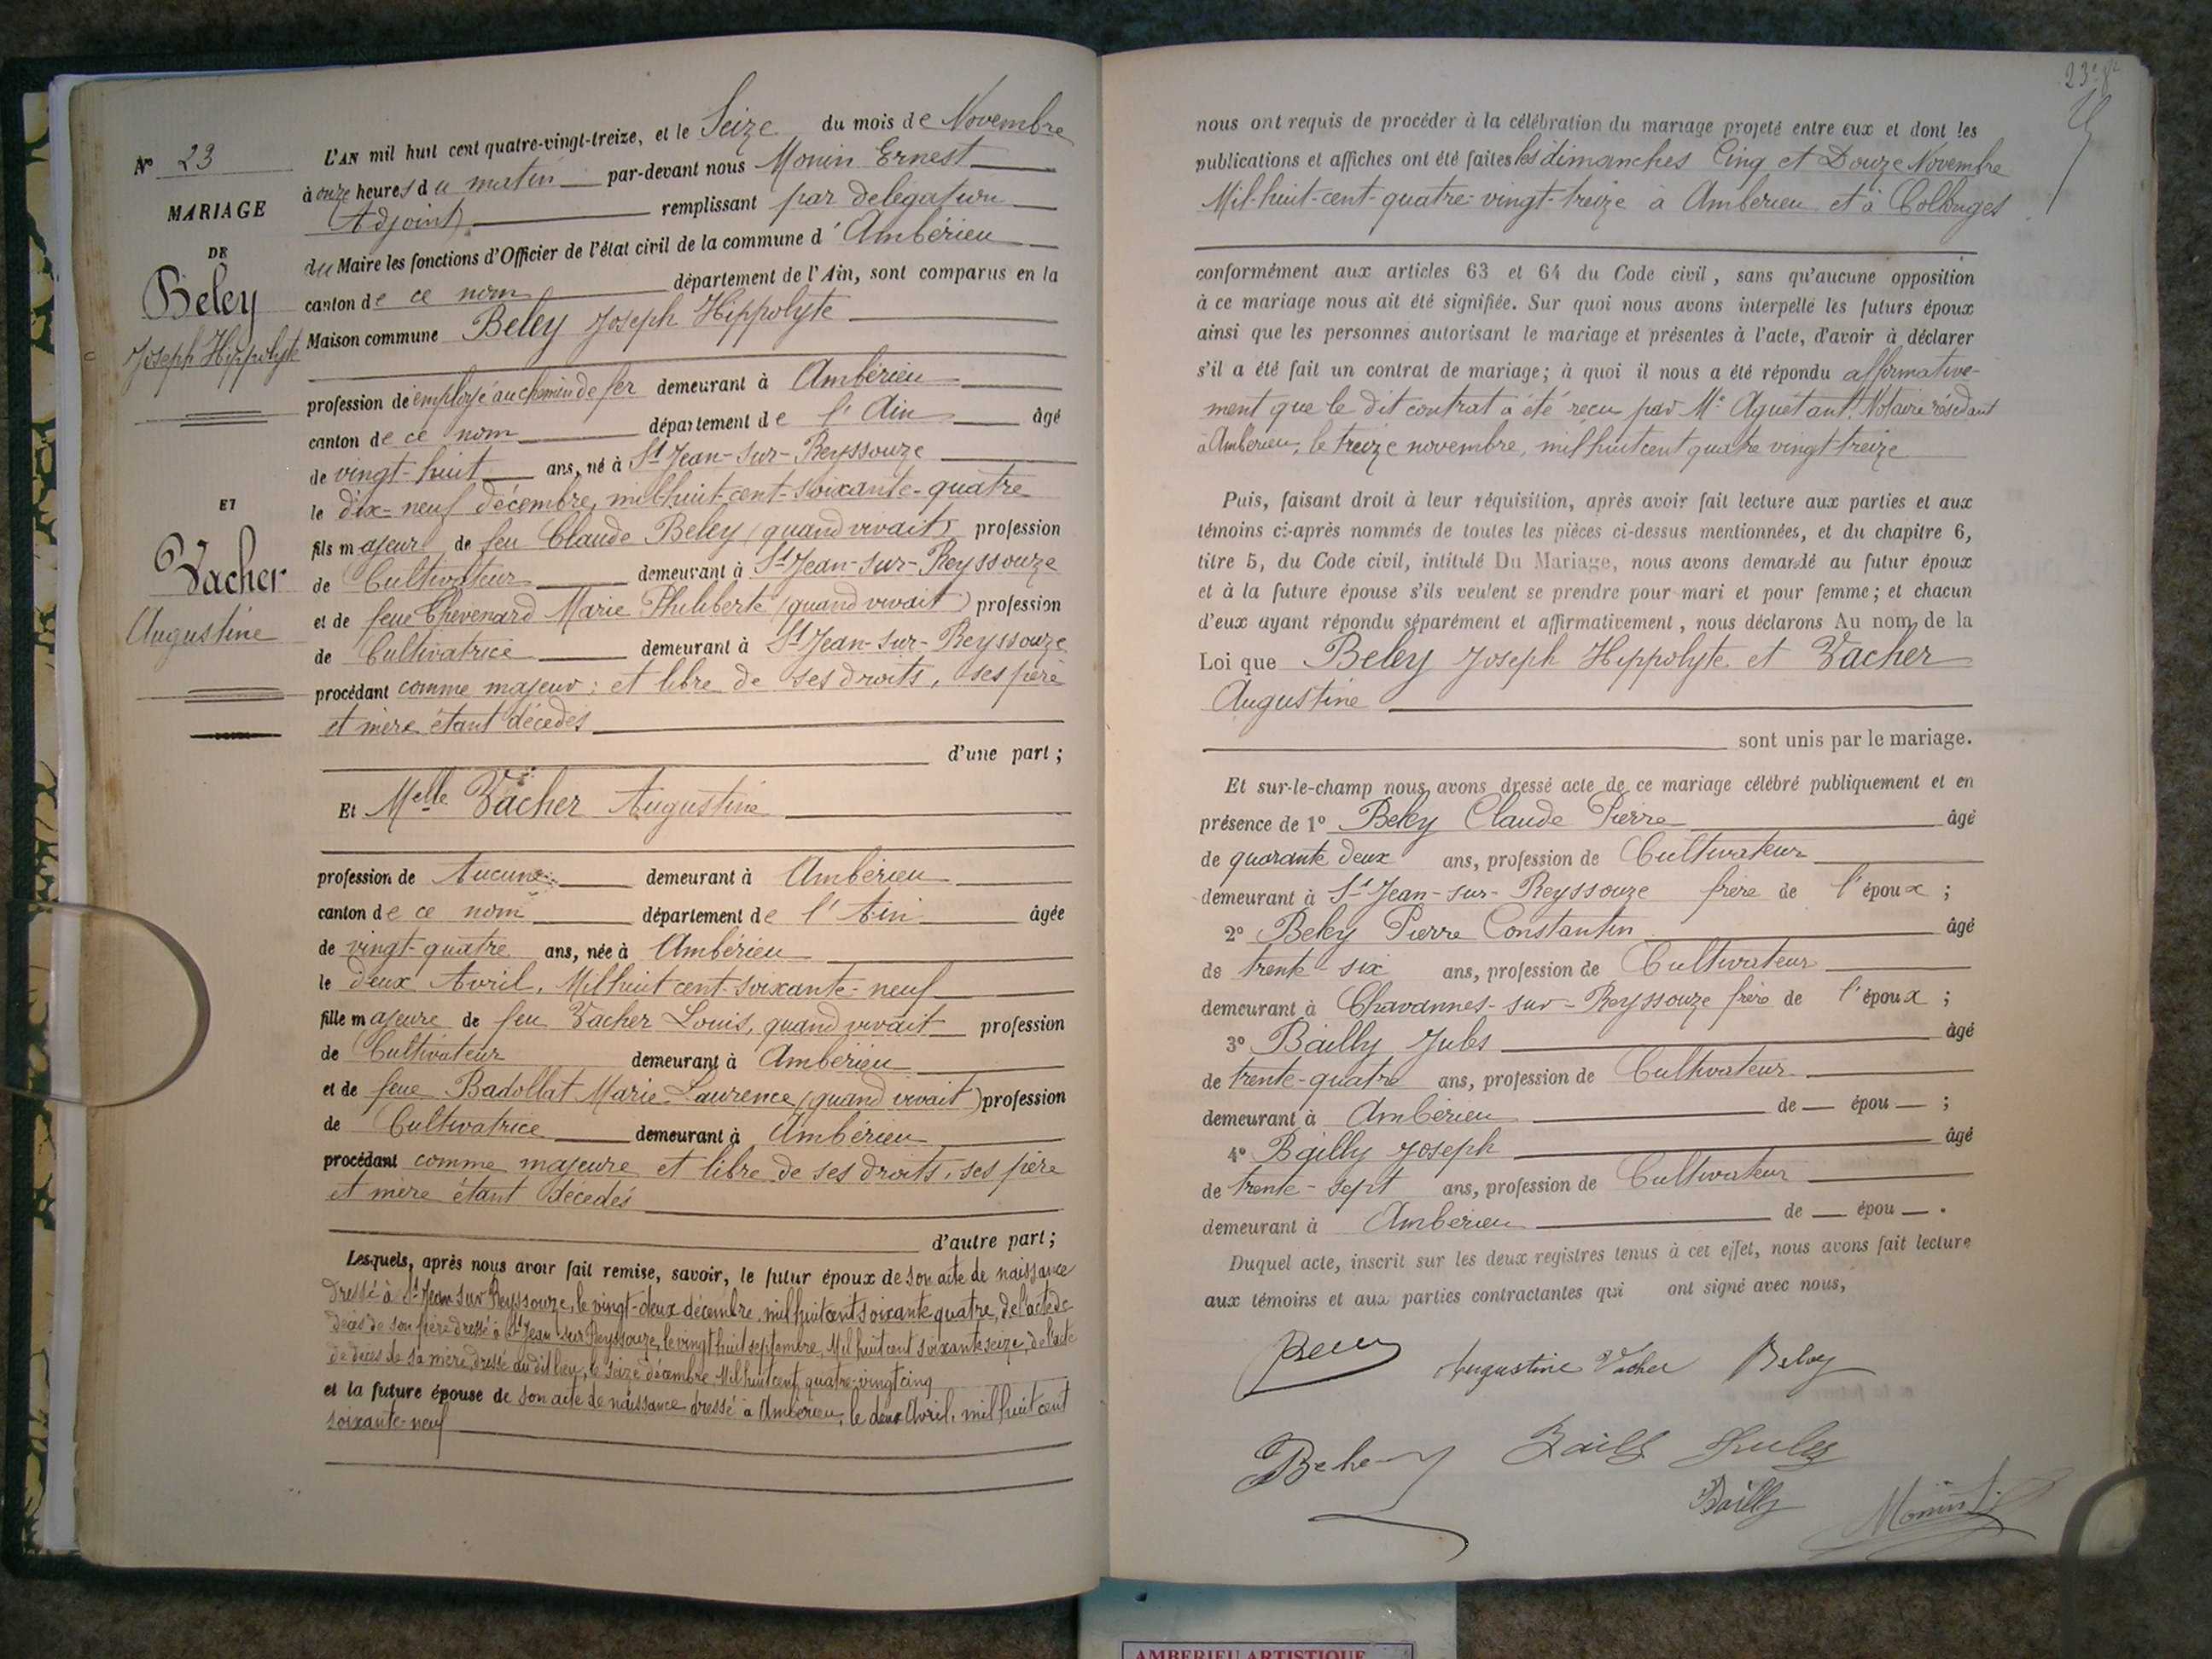 N° 23
MARIAGE
DE
Beley
Joseph Hippolyte
ET
Vacher
Augustine
L'AN mil huit cent quatre-vingt-treize, et le Seize du mois de Novembre
à onze heures du matin par-devant nous Monin Ernest
Adjoint remplissant par delegation
du Maire les fonctions d'Officier de l'état civil de la commune d'Ambérieu
canton de ce nom département de l'Ain, sont comparus en la
Maison commune Beley Joseph Hippolyte
profession de employé au chemin de fer demeurant à Ambérieu
canton de ce nom département de l'Ain âgé
de vingt-huit ans, né à St Jean-sur-Reyssouze
le dix-neuf décembre, mil-huit-cent-soixante-quatre
fils majeur de feu Claude Beley (quand vivait) profession
de Cultivateur demeurant à St Jean-sur-Reyssouze
et de feue Chevenard Marie Philiberte (quand vivait) profession
de Cultivatrice demeurant à St Jean-sur-Reyssouze
procédant comme majeur; et libre de ses droits, ses père
et mère étant décedés
d'une part;
Et Melle Vacher Augustine
profession de Aucune demeurant à Ambérieu
canton de ce nom département de l'Ain âgée
de vingt-quatre ans, née à Ambérieu
le deux Avril, Mil huit cent-soixante-neuf
fille majeure de feu Vacher Louis, quand vivait profession
de Cultivateur demeurant à Ambérieu
et de feue Badollat Marie Laurence (quand vivait) profession
de Cultivatrice demeurant à Ambérieu
procédant comme majeure et libre de ses droits, ses père
et mère étant décedés
d'autre part;
Lesquels, après nous avoir fait remise, savoir, le futur époux de son acte de naissance
dressé à St Jean sur Reyssouze, le vingt-deux décembre, mil huit cent soixante quatre, de l'acte de
décès de son père dressé à St Jean sur Reyssouze, le vingt huit septembre, Mil huit cent soixante seize, de l'acte
de décès de sa mère, dressé au dit lieu, le seize décembre, Mil huit cent quatre-vingt cinq
et la future épouse de son acte de naissance dressé à Ambérieu, le deux Avril, mil huit cent
soixante-neuf
nous ont requis de procéder à la célébration du mariage projeté entre eux et dont les
publications et affiches ont été faites les dimanches Cinq et Douze Novembre
Mil-huit-cent-quatre-vingt-treize à Ambérieu et à Collonges
conformément aux articles 63 et 64 du Code civil, sans qu'aucune opposition
à ce mariage nous ait été signifiée. Sur quoi nous avons interpellé les futurs époux
ainsi que les personnes autorisant le mariage et présentes à l'acte, d'avoir à déclarer
s'il a été fait un contrat de mariage; à quoi il nous a été répondu affirmative-
ment que le dit contrat a été reçu par Me Aguétant, Notaire résidant
à Ambérieu, le treize novembre, mil huit cent quatre vingt-treize
Puis, faisant droit à leur réquisition, après avoir fait lecture aux parties et aux
témoins ci-après nommés de toutes les pièces ci-dessus mentionnées, et du chapitre 6,
titre 5, du Code civil, intitulé Du Mariage, nous avons demandé au futur époux
et à la future épouse s'ils veulent se prendre pour mari et pour femme; et chacun
d'eux ayant répondu séparément et affirmativement, nous déclarons Au nom de la
Loi que Beley Joseph Hippolyte et Vacher
Augustine
sont unis par le mariage.
Et sur-le-champ nous avons dressé acte de ce mariage célébré publiquement et en
présence de 1° Beley Claude Pierre âgé
de quarante deux ans, profession de Cultivateur
demeurant à St Jean-sur-Reyssouze frère de l'époux;
2° Beley Pierre Constantin âgé
de trente-six ans, profession de Cultivateur
demeurant à Chavannes-sur-Reyssouze frère de l'époux;
3° Bailly Jules âgé
de trente-quatre ans, profession de Cultivateur
demeurant à Ambérieu de — épou —;
4° Bailly Joseph âgé
de trente-sept ans, profession de Cultivateur
demeurant à Ambérieu de — épou —.
Duquel acte, inscrit sur les deux registres tenus à cet effet, nous avons fait lecture
aux témoins et aux parties contractantes qui ont signé avec nous,
Augustine Vacher Beley
Beley Bailly Jules
Bailly Monin
AMBERIEU ARTISTIQUE